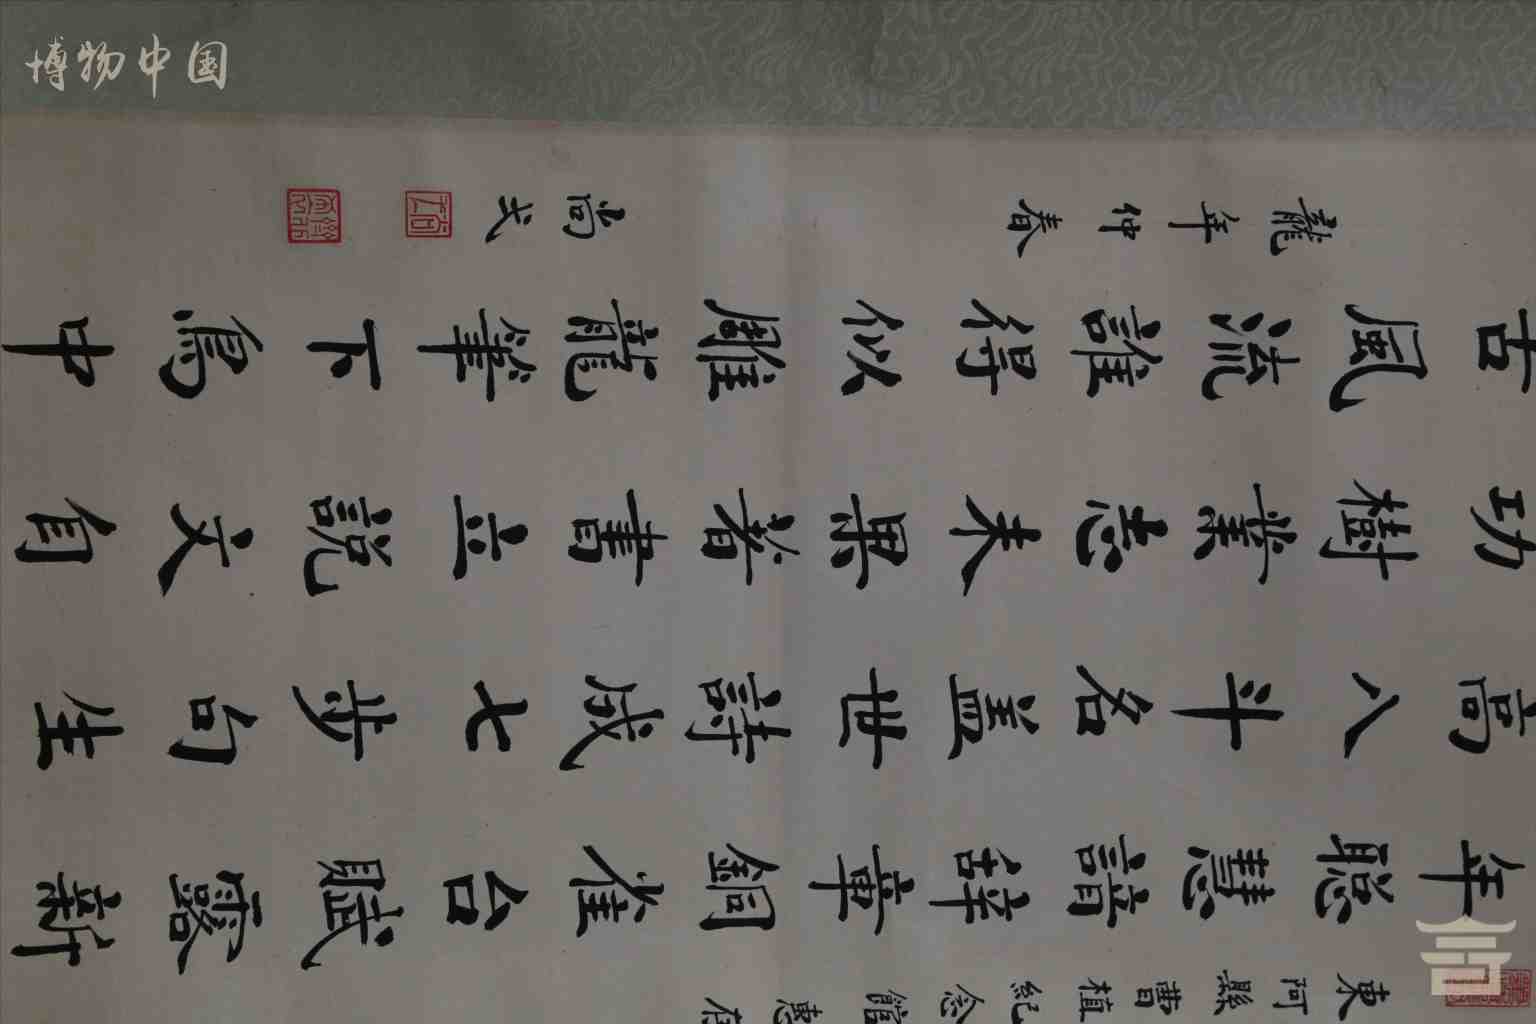 博物中国
東阿縣曹植紀念館惠存
年聰慧諳辭章銅雀台賦露新
高八斗名蓋世詩成七步句生
功樹業志未果著書立説文自
古風流誰得似雕龍筆下爲中
龍年仲春
尚